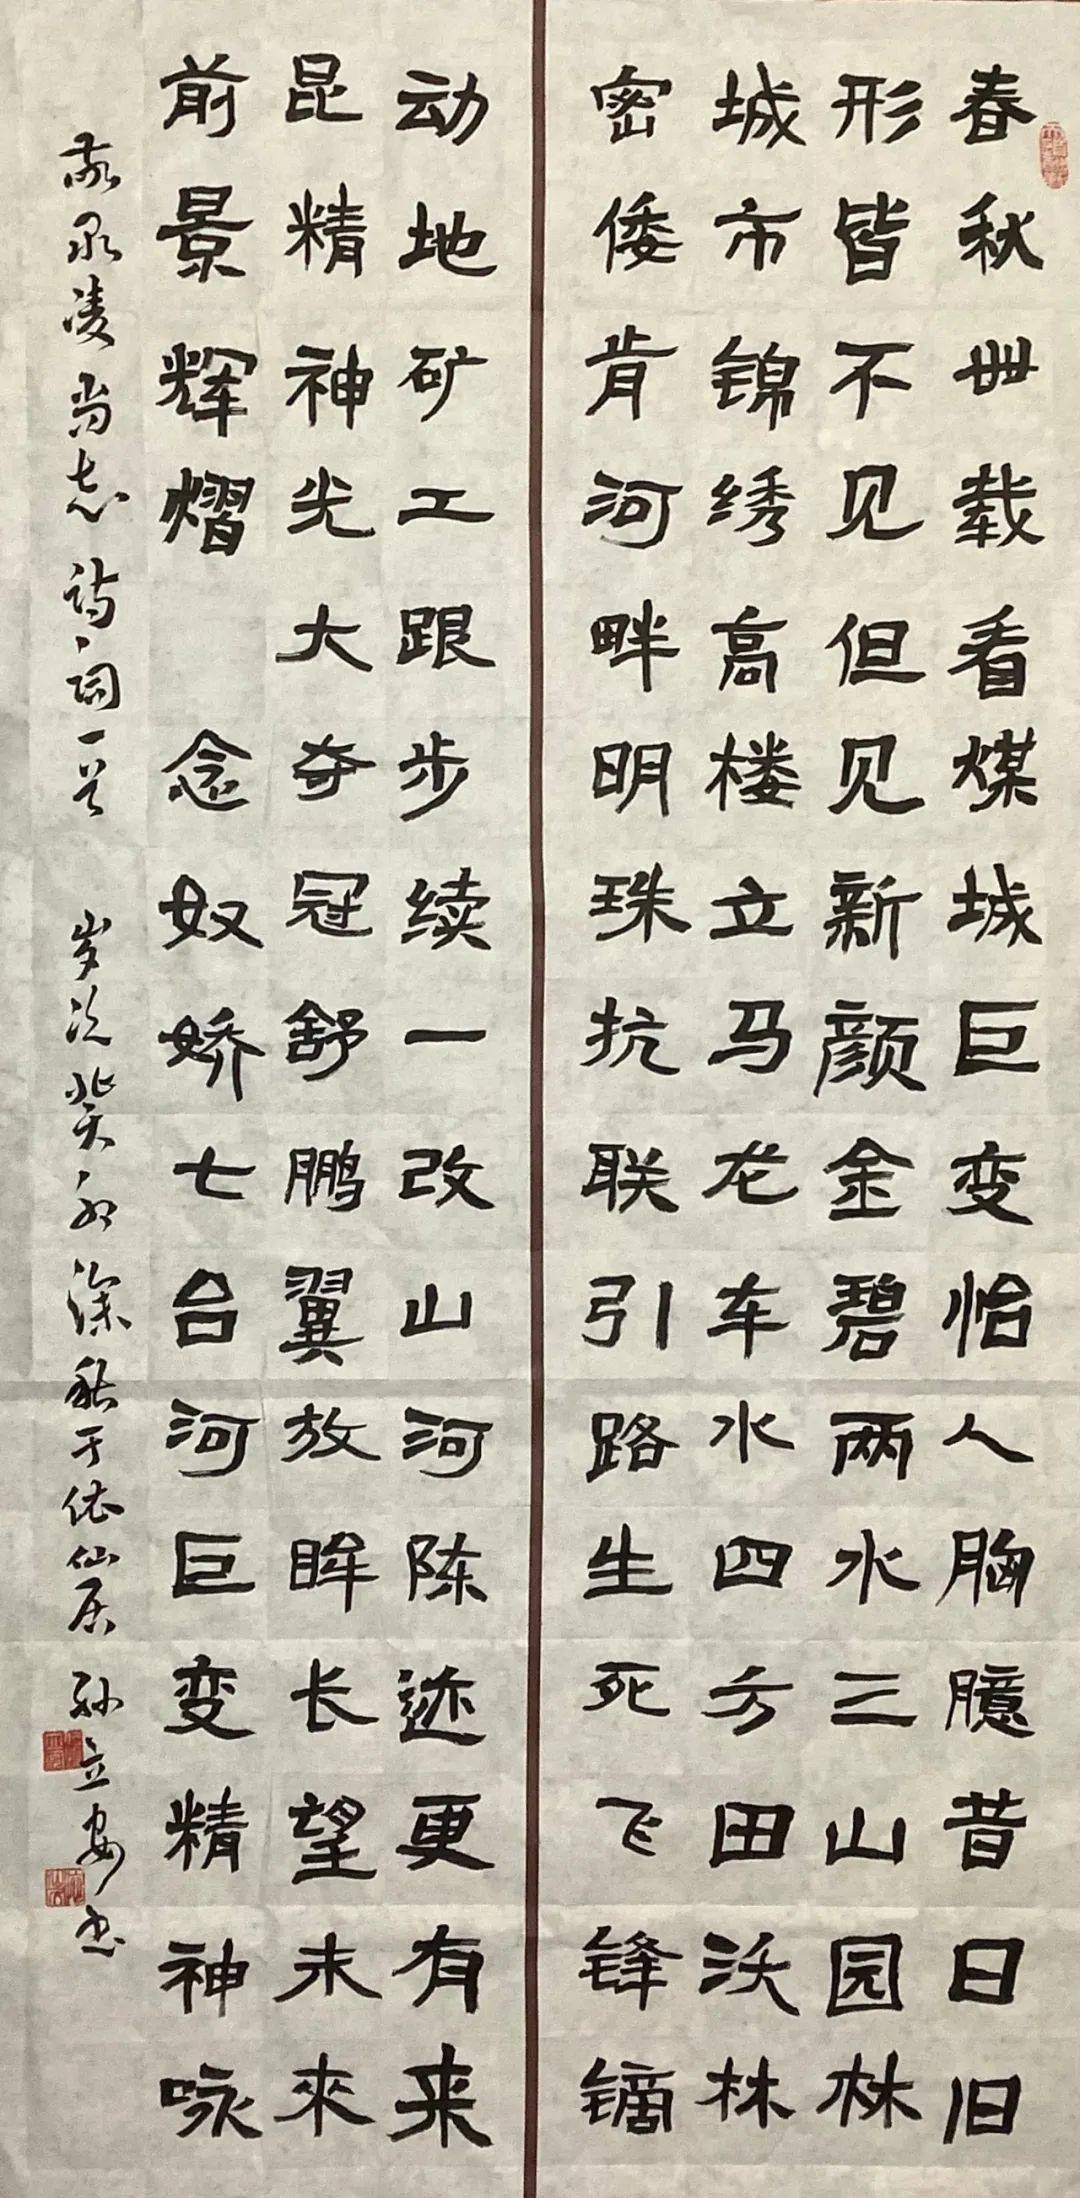 春秋卌载看煤城巨变怡人胸臆昔日旧
形皆不见但见新颜金碧两水三山园林
城市锦绣高楼立马龙车水四方田沃林
密倭肯河畔明珠抗联引路生死飞锋镝
动地矿工跟步续一改山河陈迹更有来
昆精神光大夺冠舒鹏翼放眸长望未来
前景辉熠 念奴娇七台河巨变精神咏
敬录凌尚志诗词一首 岁次癸卯深秋于佬仙居 孙立安书